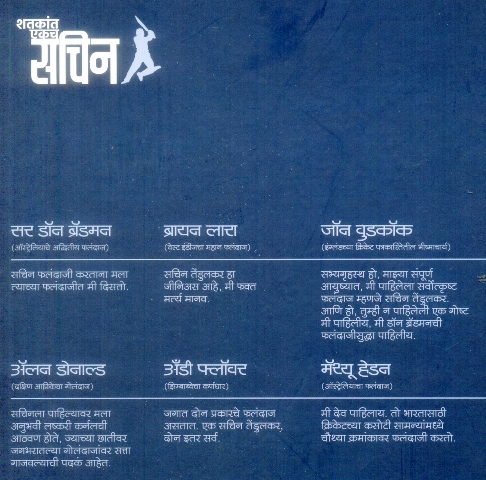 शतकांत
एकच
सचिन
सर डॉन ब्रॅडमन
(ऑस्ट्रेलियाचे अद्वितीय फलंदाज)
सचिन फलंदाजी करताना मला
त्याच्या फलंदाजीत मी दिसतो.
ब्रायन लारा
(वेस्ट इंडीजचा महान फलंदाज)
सचिन तेंडुलकर हा
जीनिअस आहे, मी फक्त
मर्त्य मानव.
जॉन वुडकॉक
(इंग्लंडच्या क्रिकेट पत्रकारितेतील भीष्माचार्य)
सभ्यगृहस्थ हो, माझ्या संपूर्ण
आयुष्यात, मी पाहिलेला सर्वोत्कृष्ट
फलंदाज म्हणजे सचिन तेंडुलकर.
आणि हो, तुम्ही न पाहिलेली एक गोष्ट
मी पाहिलीय. मी डॉन ब्रॅडमनची
फलंदाजीसुद्धा पाहिलीय.
ॲलन डोनाल्ड
(दक्षिण आफ्रिकेचा गोलंदाज)
सचिनला पाहिल्यावर मला
अनुभवी लष्करी कर्नलची
आठवण होते, ज्याच्या छातीवर
जगभरातल्या गोलंदाजांवर सत्ता
गाजवल्याची पदकं आहेत.
अँडी फ्लॉवर
(झिम्बाब्वेचा कर्णधार)
जगात दोन प्रकारचे फलंदाज
असतात. एक सचिन तेंडुलकर,
दोन इतर सर्व.
मॅथ्यू हेडन
(ऑस्ट्रेलियाचा फलंदाज)
मी देव पाहिलाय. तो भारतासाठी
क्रिकेटच्या कसोटी सामन्यांमध्ये
चौथ्या क्रमांकावर फलंदाजी करतो.